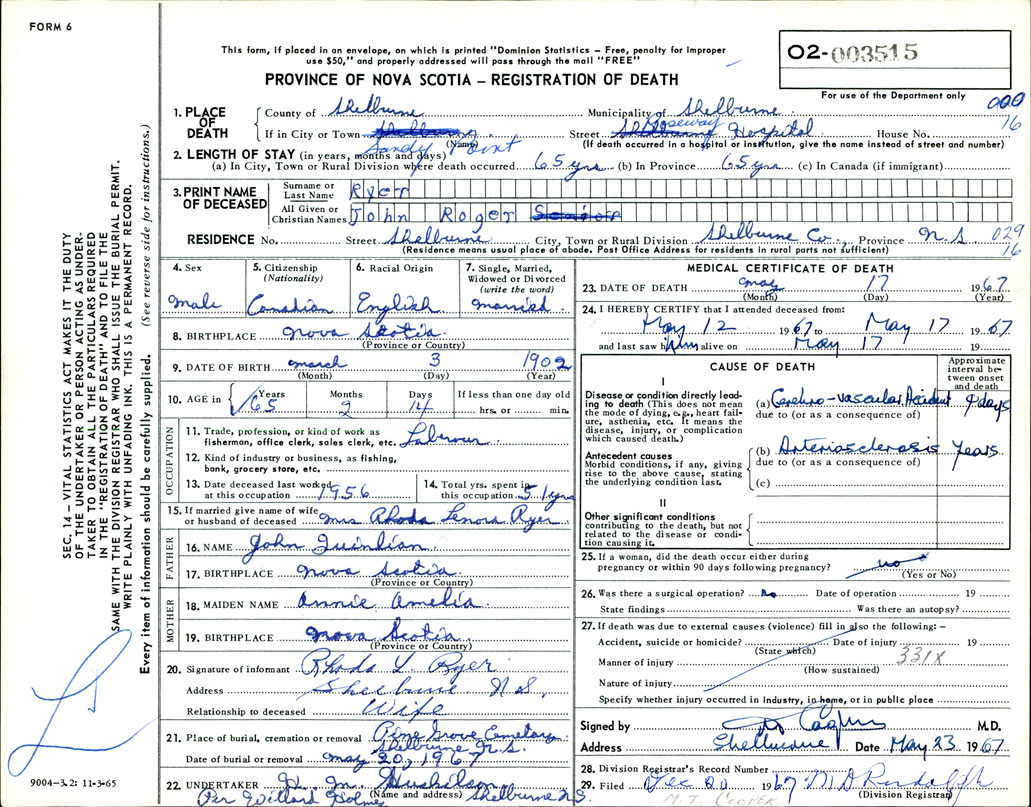 FORM 6
This form, if placed in an envelope, on which is printed "Dominion Statistics – Free, penalty for improper
use $50," and properly addressed will pass through the mail "FREE"
PROVINCE OF NOVA SCOTIA – REGISTRATION OF DEATH
02-003515
For use of the Department only
000
16
1. PLACE OF DEATH
County of Shelburne Municipality of Shelburne
If in City or Town Sandy Point (Name) Street Roseway Hospital House No.
(If death occurred in a hospital or institution, give the name instead of street and number)
2. LENGTH OF STAY (in years, months and days)
(a) In City, Town or Rural Division where death occurred 65 yrs (b) In Province 65 yrs (c) In Canada (if immigrant)
3. PRINT NAME OF DECEASED
Surname or Last Name Ryer
All Given or Christian Names John Roger
RESIDENCE No. Street Shelburne City, Town or Rural Division Shelburne Co., Province N.S. 029
(Residence means usual place of abode. Post Office Address for residents in rural parts not sufficient) 16
4. Sex Male
5. Citizenship (Nationality) Canadian
6. Racial Origin English
7. Single, Married, Widowed or Divorced (write the word) Married
8. BIRTHPLACE Nova Scotia
(Province or Country)
9. DATE OF BIRTH March 3 1902
(Month) (Day) (Year)
10. AGE in Years 65 Months 2 Days 14 If less than one day old hrs. or min.
OCCUPATION
11. Trade, profession, or kind of work as
fisherman, office clerk, sales clerk, etc. Labour
12. Kind of industry or business, as fishing,
bank, grocery store, etc.
13. Date deceased last worked at this occupation 1956
14. Total yrs. spent in this occupation 51 yrs
15. If married give name of wife
or husband of deceased Mrs Rhoda Lenora Ryer
FATHER
16. NAME John Quinlian
17. BIRTHPLACE Nova Scotia
(Province or Country)
MOTHER
18. MAIDEN NAME Annie Amelia
19. BIRTHPLACE Nova Scotia
(Province or Country)
20. Signature of informant Rhoda L Ryer
Address Shelburne N.S.
Relationship to deceased Wife
21. Place of burial, cremation or removal Pine Grove Cemetary
Shelburne N.S.
Date of burial or removal May 20, 1967
22. UNDERTAKER H. M.
(Name and address) Shelburne N.S.
Per Willard Holmes
MEDICAL CERTIFICATE OF DEATH
23. DATE OF DEATH May 17 1967
(Month) (Day) (Year)
24. I HEREBY CERTIFY that I attended deceased from:
May 12 1967 to May 17 1967
and last saw him alive on May 17 19
CAUSE OF DEATH
Approximate interval between onset and death
I
Disease or condition directly leading to death (This does not mean the mode of dying, e.g., heart failure, asthenia, etc. It means the disease, injury, or complication which caused death.)
(a) Cerebro-vascular Accident 9 days
due to (or as a consequence of)
Antecedent causes
Morbid conditions, if any, giving rise to the above cause, stating the underlying condition last.
(b) Arteriosclerosis years
due to (or as a consequence of)
(c)
II
Other significant conditions
contributing to the death, but not related to the disease or condition causing it.
25. If a woman, did the death occur either during
pregnancy or within 90 days following pregnancy? no
(Yes or No)
26. Was there a surgical operation? No Date of operation 19
State findings Was there an autopsy?
27. If death was due to external causes (violence) fill in also the following:–
Accident, suicide or homicide? Date of injury 19
(State which) 331X
Manner of injury
(How sustained)
Nature of injury
Specify whether injury occurred in Industry, in home, or in public place
Signed by M.D.
Address Shelburne Date May 23 1967
28. Division Registrar's Record Number
29. Filed Dec 20 1967 M D Randolph
M. J. COOPER (Division Registrar)
SEC. 14 – VITAL STATISTICS ACT MAKES IT THE DUTY
OF THE UNDERTAKER OR PERSON ACTING AS UNDER-
TAKER TO OBTAIN ALL THE PARTICULARS REQUIRED
IN THE "REGISTRATION OF DEATH" AND TO FILE THE
SAME WITH THE DIVISION REGISTRAR WHO SHALL ISSUE THE BURIAL PERMIT.
WRITE PLAINLY WITH UNFADING INK. THIS IS A PERMANENT RECORD.
Every item of information should be carefully supplied. (See reverse side for instructions.)
9004-3.2: 11-3-65